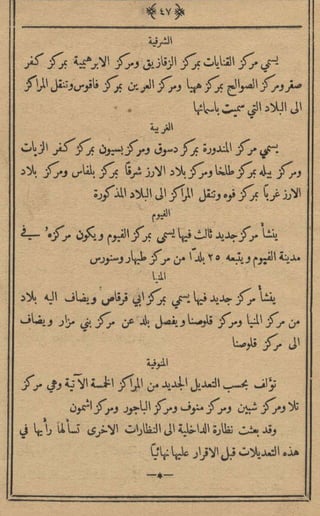 ﴿ ٤٧ ﴾
الشرقية
يسمي مركز القنايات بمركز الزقازيق ومركز الابرهيمية بمركز كفر
صقر ومركز الصوالح بمركز ههيا ومركز العرين بمركز فاقوس وتنقل المراكز
الى البلاد التي سميت باسمائها
الغربية
يسمي مركز المندورة بمركز دسوق ومركز بسيون بمركز كفر الزيات
ومركز بيله بمركز طلخا ومركز بلاد الارز شرقًا بمركز بلقاس ومركز بلاد
الارز غربًا بمركز فوه وتنقل المراكز الى البلاد المذكورة
الفيوم
ينشأ مركز جديد ثالث فيها يسمى بمركز الفيوم ويكون مركزه في
مدينة الفيوم ويتبعه ٢٥ بلدًا من مركز طبهار وسنورس
المنيا
ينشأ مركز جديد فيها يسمي بمركز ابي قرقاص ويضاف اليه بلاد
من مركز المنيا ومركز قلوصنا ويفصل بلد عن مركز بني مزار ويضاف
الى مركز قلوصنا
المنوفية
تؤلف بحسب التعديل الجديد من المراكز الخمسة الآتية وهي مركز
تلا ومركز شبين ومركز منوف ومركز الباجور ومركز اشمون
وقد بعثت نظارة الداخلية الى النظارات الاخرى تسألها رأيها في
هذه التعديلات قبل الاقرار عليها نهائيًا